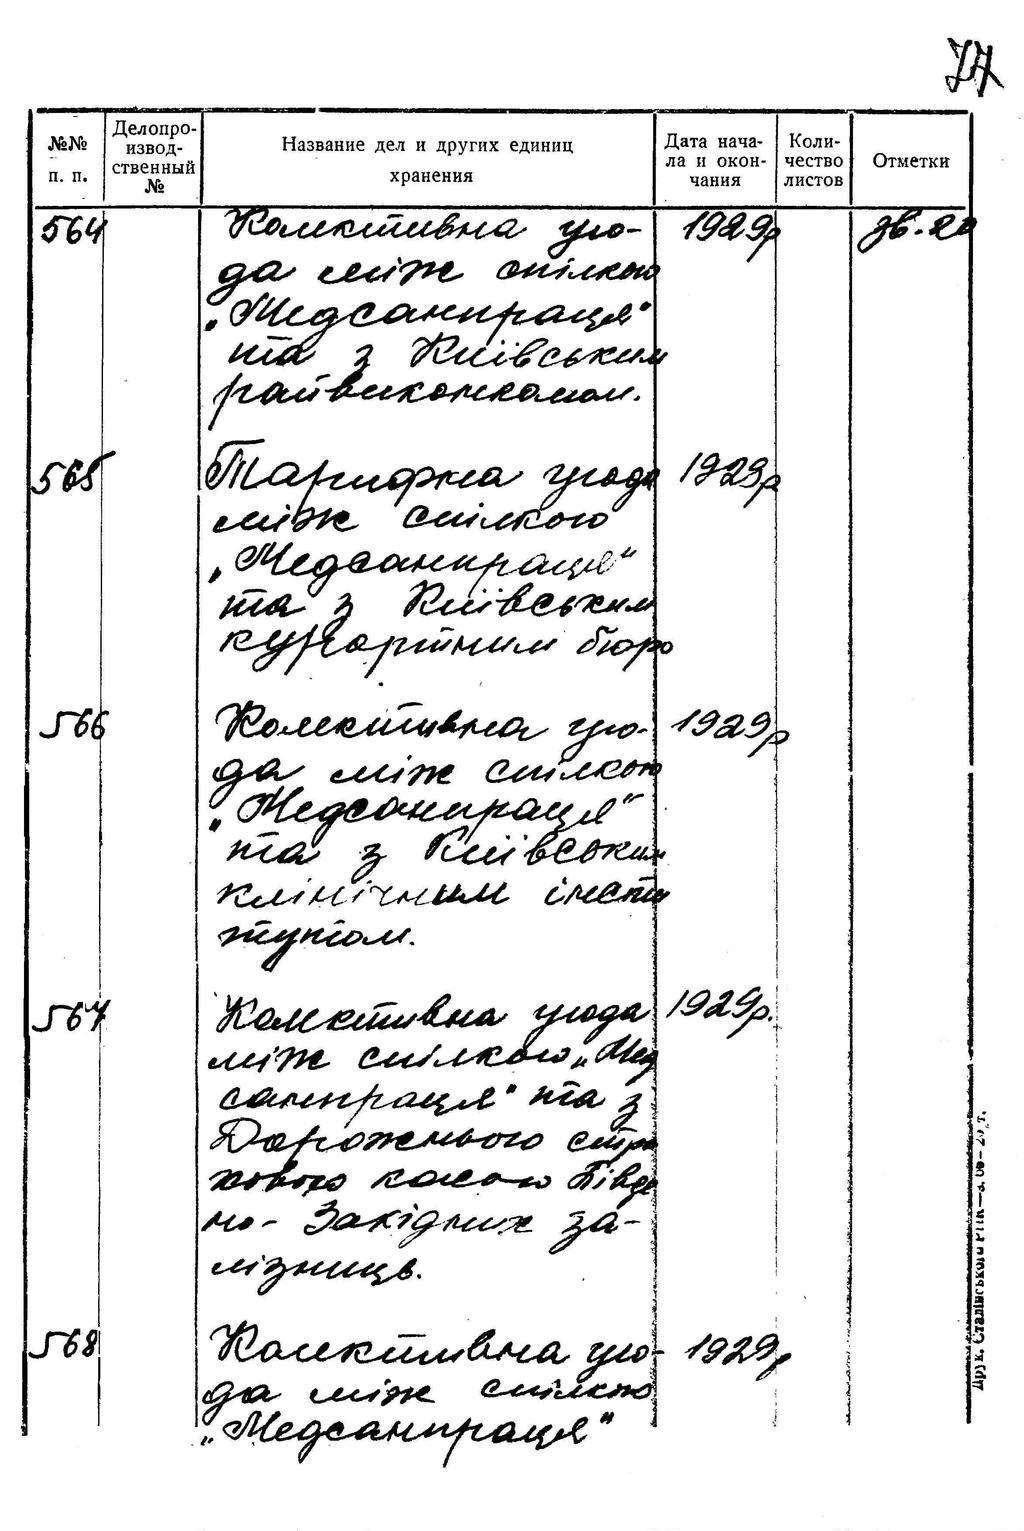 77
№№ п. п.
Делопроизводственный №
Название дел и других единиц хранения
Дата начала и окончания
Количество листов
Отметки
564 Колективна уго- 1929р
да між спілкою
„Медсанпраця"
та з Київським
райвиконкомом.
565 Тарифна угода 1929р
між спілкою
„Медсанпраця"
та з Київським
курортним бюро
566 Колективна уго- 1929р
да між спілкою
„Медсанпраця"
та з Київським
клінічним інсти
тутом.
567 Колективна угода 1929р.
між спілкою „Мед
санпраця" та з
Дорожнього стра
ховою касою Півде
но-Західних за-
лізниць.
568 Колективна уго- 1929р
да між спілкою
„Медсанпраця"
Друк. Сталінського РПК